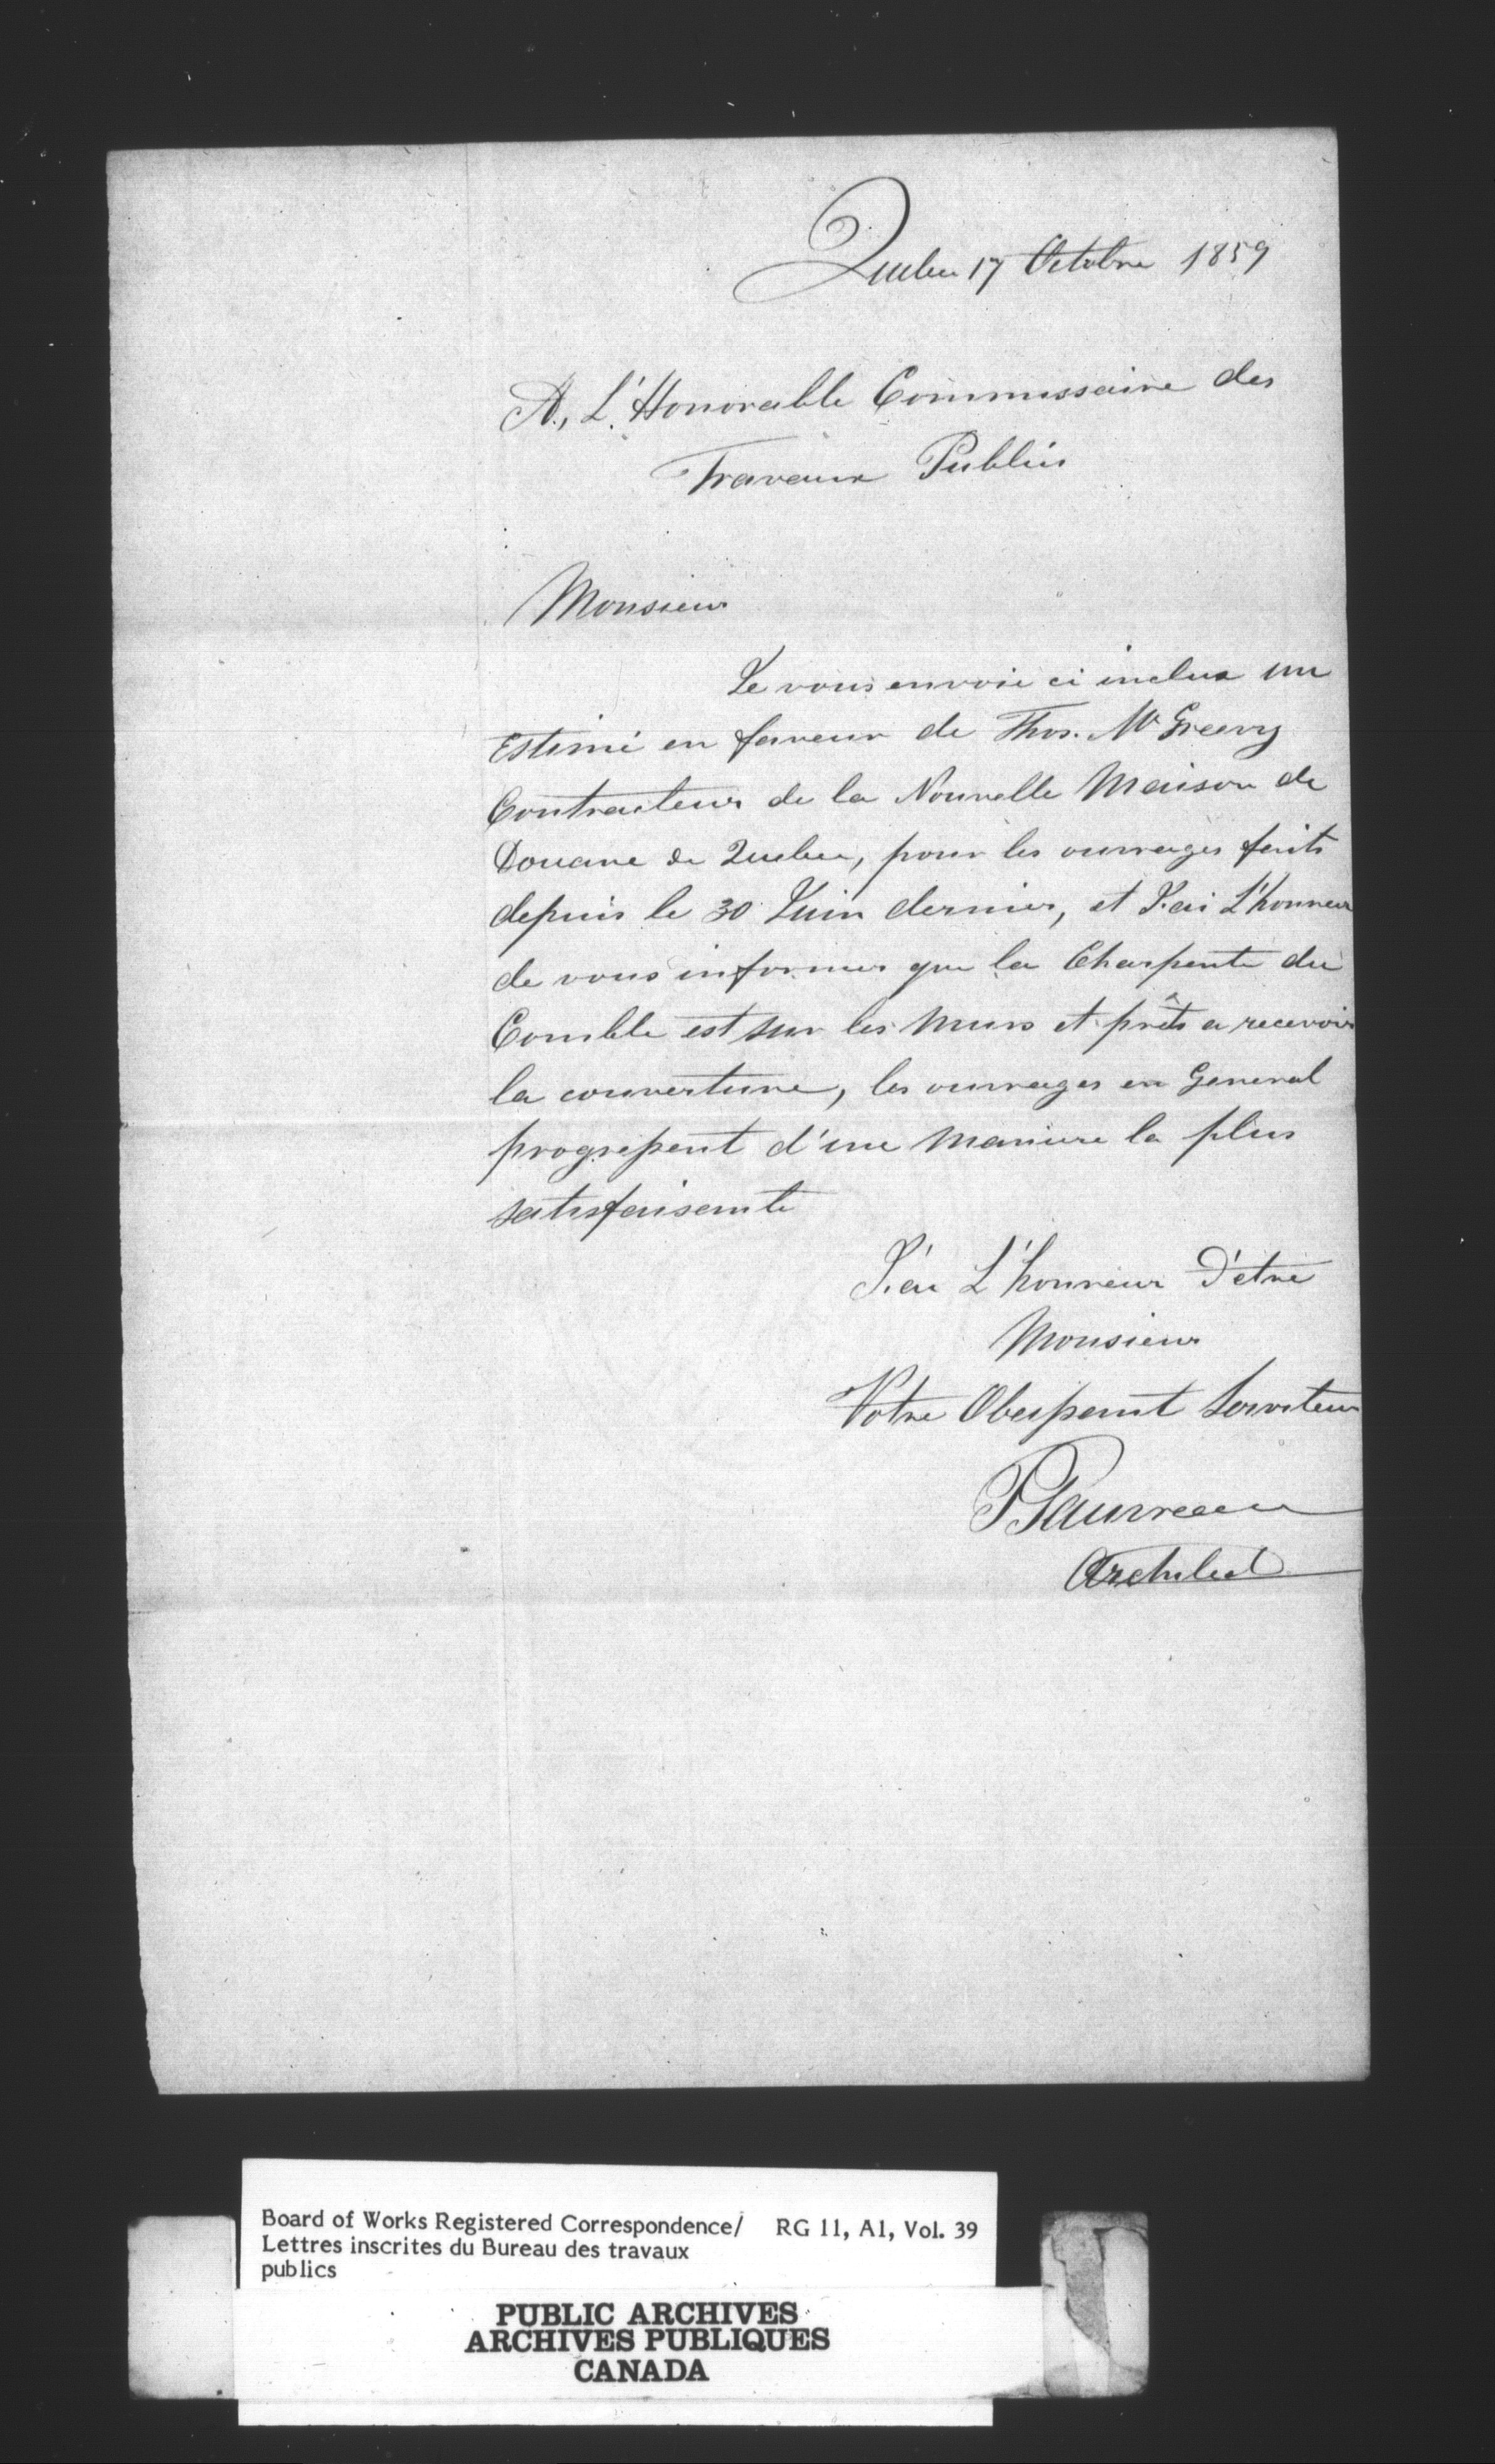 Quebec 17 Octobre 1859
A., L'Honorable Commissaire des
Travaux Publics
Monsieur
Je vous envoie ci inclus un
Estimé en faveur de Thos. McGreevy
Contracteur de la Nouvelle Maison de
Douane de Quebec, pour les ouvrages faits
depuis le 30 Juin dernier, et J'ai L'honneur
de vous informer que la Charpente du
Comble est sur les murs et prêts a recevoir
la couverture, les ouvrages en General
progressent d'une maniere la plus
satisfaisante
J'ai L'honneur D'etre
Monsieur
Votre Obeissant Serviteur
P Gauvreau
Architect
Board of Works Registered Correspondence/ RG 11, A1, Vol. 39
Lettres inscrites du Bureau des travaux
publics
PUBLIC ARCHIVES
ARCHIVES PUBLIQUES
CANADA